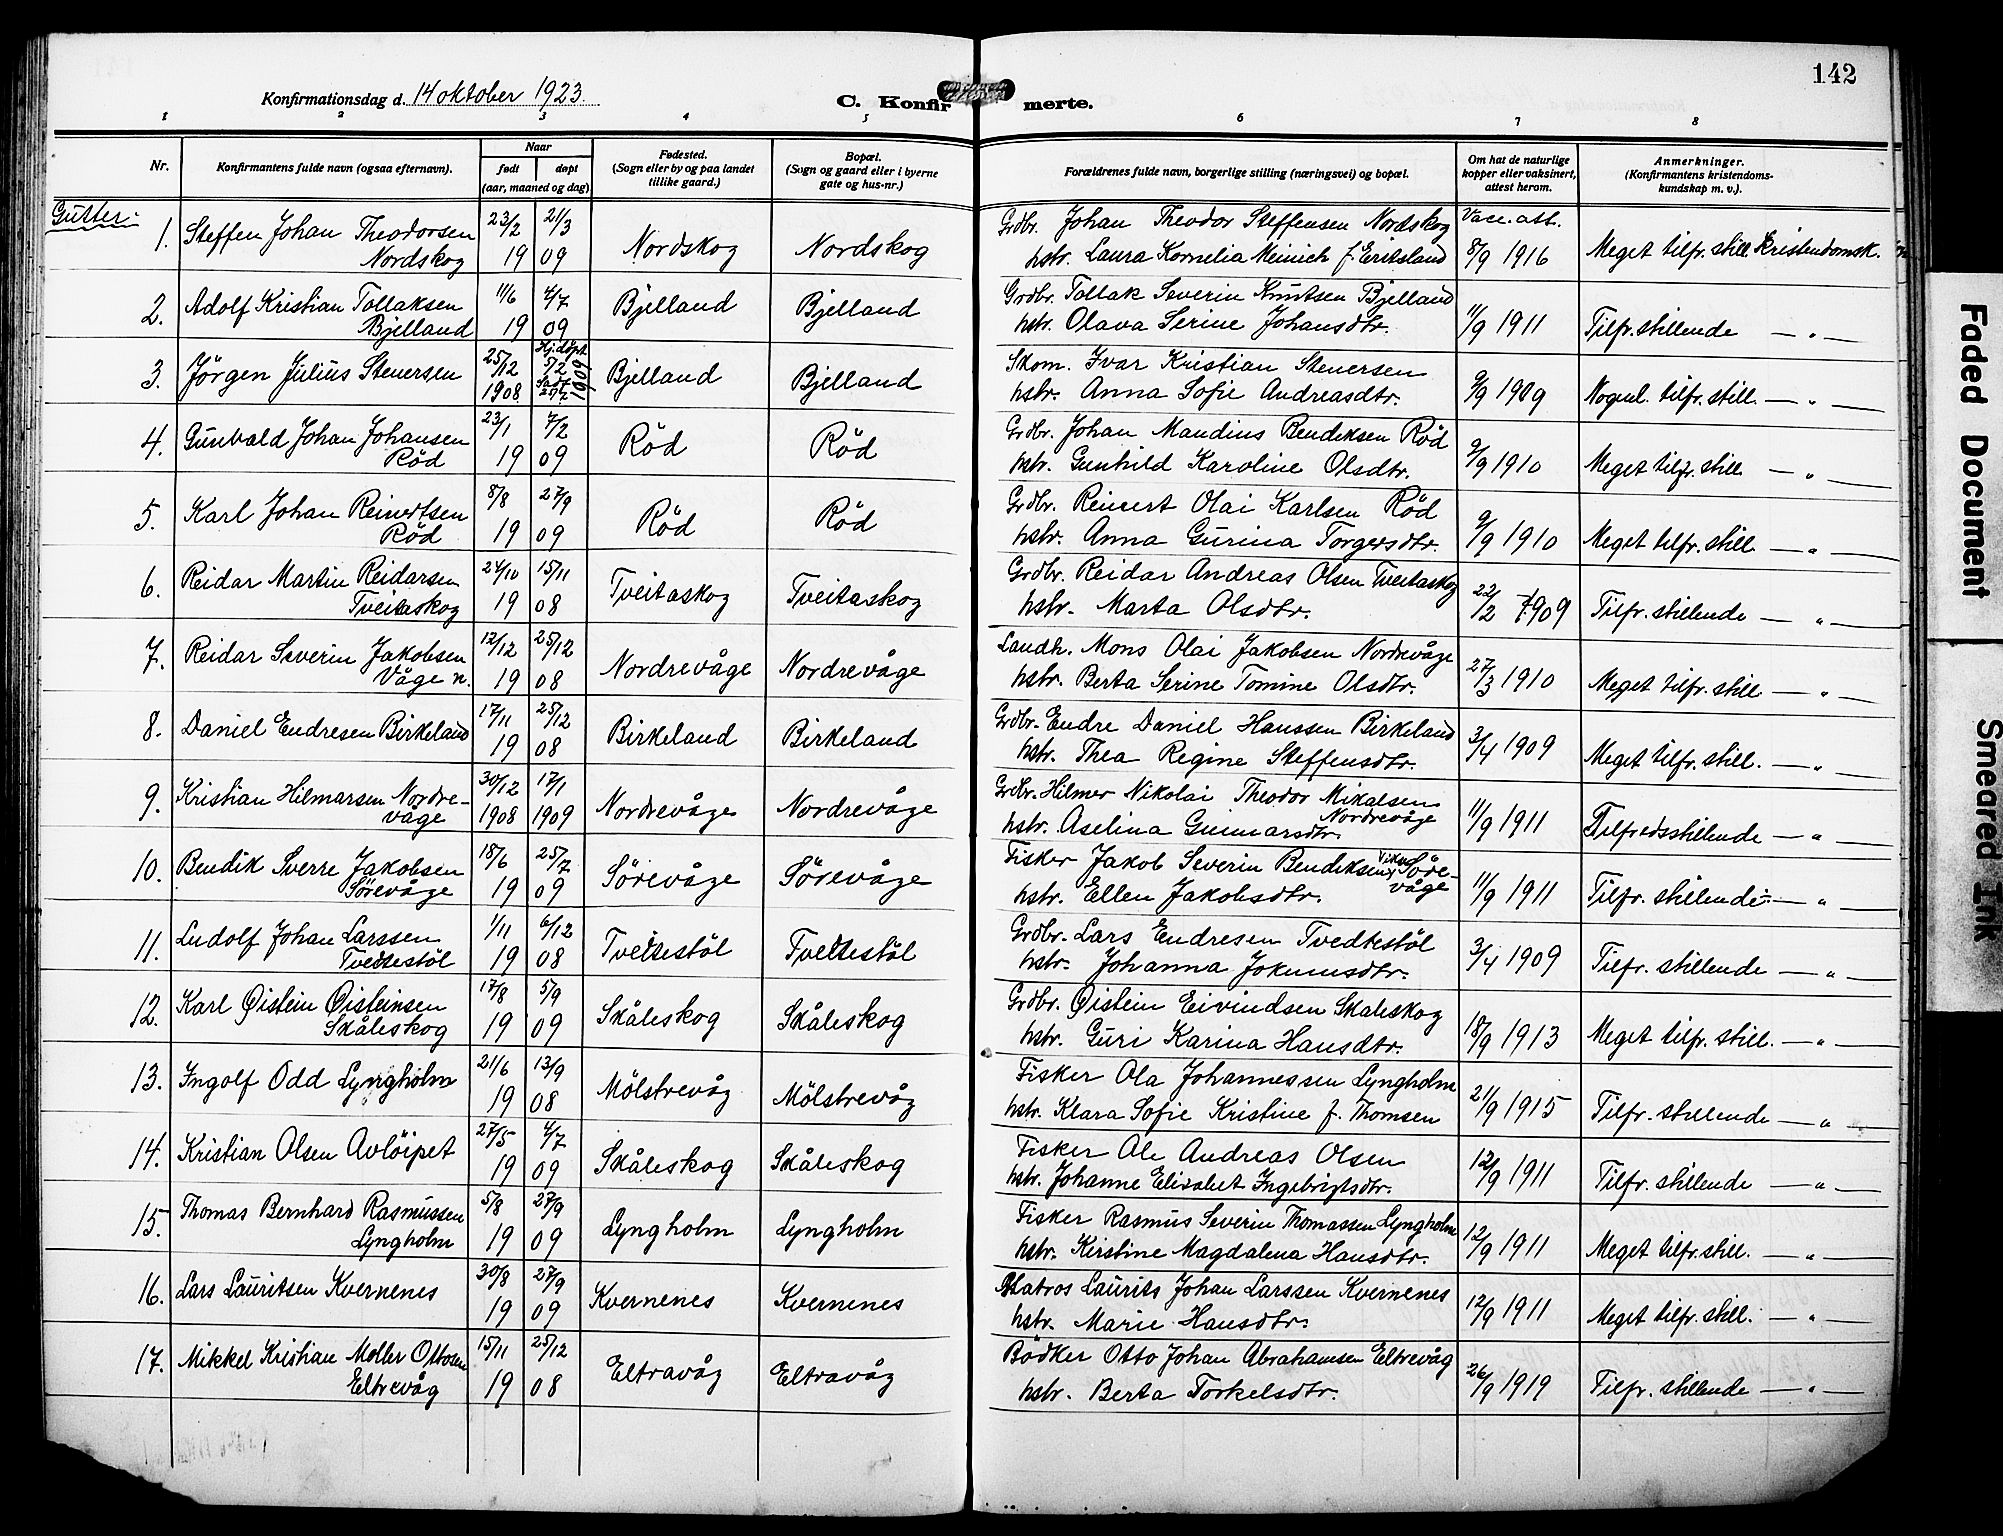 142
Konfirmationsdag d. 14 oktober 1923.
C. Konfirmerte.
1 2 3 4 5 6 7 8
Nr.
Konfirmantens fulde navn (ogsaa efternavn).
Naar
født
døpt
(aar, maaned og dag)
Fødested.
(Sogn eller by og paa landet
tillike gaard.)
Bopæl.
(Sogn og gaard eller i byerne
gate og hus-nr.)
Forældrenes fulde navn, borgerlige stilling (næringsvei) og bopæl.
Om hat de naturlige
kopper eller vaksinert,
attest herom.
Anmerkninger.
(Konfirmantens kristendoms-
kundskap m. v.).
Gutter:
1. Steffen Johan Theodorsen 23/2 21/3 Grdbr. Johan Theodor Steffensen Nordskog Vacc. att.
Nordskog 19 09 Nordskog Nordskog hstr. Laura Kornelia Meinich f. Eritsland 8/9 1916 Meget tilfr. still. Kristendomsk.
2. Adolf Kristian Tollaksen 11/6 4/7 Bjelland Bjelland Grdbr. Tollak Severin Knutsen Bjelland
Bjelland 19 09 hstr. Olava Serine Johansdtr. 11/9 1911 Tilfr. stillende — " —
3. Jörgen Julius Stenersen 25/12 1908 Hj. döpt 5/2 1909 Bjelland Bjelland Skom. Ivar Kristian Stenersen
hstr. Anna Sofie Andreasdtr. 9/9 1909 Nogenl. tilfr. still. — " —
4. Gunvald Johan Johansen 23/1 7/2 Röd Röd Grdbr. Johan Mandius Bendiksen Röd
Röd 19 09 hstr. Gunhild Karoline Olsdtr. 9/9 1910 Meget tilfr. still — " —
5. Karl Johan Reinertsen 8/8 27/9 Röd Röd Grdbr. Reinert Olai Karlsen Röd
Röd 19 09 hstr. Anna Gurina Torgersdtr. 9/9 1910 Meget tilfr. still — " —
6. Reidar Martin Reidarsen 24/10 15/11 Tveitaskog Tveitaskog Grdbr. Reidar Andreas Olsen Tveitaskog
Tveitaskog 19 08 hstr. Marta Olsdtr. 22/2 1909 Tilfr. stillende — " —
7. Reidar Severin Jakobsen 12/12 25/12 Nordrevåge Nordrevåge Landh. Mons Olai Jakobsen Nordrevåge
Våge n. 19 08 hstr. Berta Serine Tomine Olsdtr. 27/3 1910 Meget tilfr. still — " —
8. Daniel Endresen Birkeland 17/11 25/12 Birkeland Birkeland Grdbr. Endre Daniel Hanssen Birkeland
19 08 hstr. Thea Regine Steffensdtr. 3/4 1909 Meget tilfr. still. — " —
9. Kristian Hilmarsen Nordre- 30/12 17/1 Nordrevåge Nordrevåge Grdbr. Hilmer Nikolai Theodor Mikalsen
våge 1908 1909 Nordrevåge
hstr. Aselina Gunnarsdtr. 11/9 1911 Tilfredsstillende — " —
10. Bendik Sverre Jakobsen 18/6 25/7 Sörevåge Sörevåge Fisker Jakob Severin Bendiksen Söre-
Sörevåge 19 09 våge
hstr. Ellen Jakobsdtr. 11/9 1911 Tilfr. stillende — " —
11. Ludolf Johan Larssen 1/11 6/12 Tvedtestöl Tvedtestöl Grdbr. Lars Endresen Tvedtestöl
Tvedtestöl 19 08 hstr. Johanna Jokumsdtr. 3/4 1909 Tilfr. stillende — " —
12. Karl Øistein Øisteinsen 17/8 5/9 Skåleskog Skåleskog Grdbr. Øistein Eivindsen Skaleskog
Skåleskog 19 09 hstr. Guri Karina Hansdtr. 18/9 1913 Meget tilfr. still. — " —
13. Ingolf Odd Lyngholm 21/6 13/9 Mölstrevåg Mölstrevåg Fisker Ola Johannessen Lyngholm
19 08 hstr. Klara Sofie Kristine f. Thomsen 21/9 1915 Tilfr. stillende — " —
14. Kristian Olsen Avlöipet 27/5 4/7 Skåleskog Skåleskog Fisker Ole Andreas Olsen
19 09 hstr. Johanne Elisabet Ingebrigtsdtr. 12/9 1911 Tilfr. stillende — " —
15. Thomas Bernhard Rasmussen 5/8 27/9 Lyngholm Lyngholm Fisker Rasmus Severin Thomassen Lyngholm
Lyngholm 19 09 hstr. Kirstine Magdalena Hansdtr. 12/9 1911 Meget tilfr. still. — " —
16. Lars Lauritsen Kvernenes 30/8 27/9 Kvernenes Kvernenes Matros Laurits Johan Larssen Kvernenes
19 09 hstr. Marie Hansdtr. 12/9 1911 Meget tilfr. still. — " —
17. Mikkel Kristian Moller Ottosen 15/11 25/12 Eltravåg Eltravåg Bödker Otto Johan Abrahamsen Eltrevåg
Eltrevåg 19 08 hstr. Berta Torkelsdtr. 26/9 1919 Tilfr. stillende — " —
Faded Document
Smeared Ink